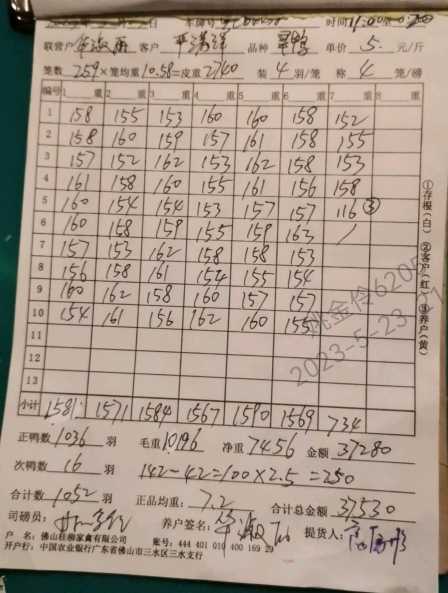 日 车牌号 时间
联营户 客户 品种 单价 5. 元/斤
笼数 259 × 笼均重 10.58 = 皮重 2740 装 4 羽/笼 称 4 笼/磅
编号 1 重 2 重 3 重 4 重 5 重 6 重 7 重 8 重
1 158 155 153 160 160 158 152
2 158 160 159 157 161 158 155
3 157 152 162 153 162 158 153
4 161 158 160 155 161 156 158
5 160 154 154 153 157 157 116 ③
6 160 158 159 155 159 163
7 157 153 162 158 158 153
8 156 158 161 154 155 154
9 160 162 158 160 157 157
10 154 161 156 162 160 155
11
12
13
小计 1581 1571 1584 1567 1590 1569 734
正鸭数 1036 羽 毛重 10196 净重 7456 金额 37280
次鸭数 16 羽 142-42=100×2.5=250
合计数 1052 羽 正品均重: 7.2 合计总金额 37530
司磅员: 养户签名: 提货人:
户 名: 佛山桂柳家禽有限公司 账号: 444 401 010 400 169 29
开户行: 中国农业银行广东省佛山市三水区三水支行
①存根(白) ②客户(红) ③养户(黄)
姚金伶6205
2023-5-23